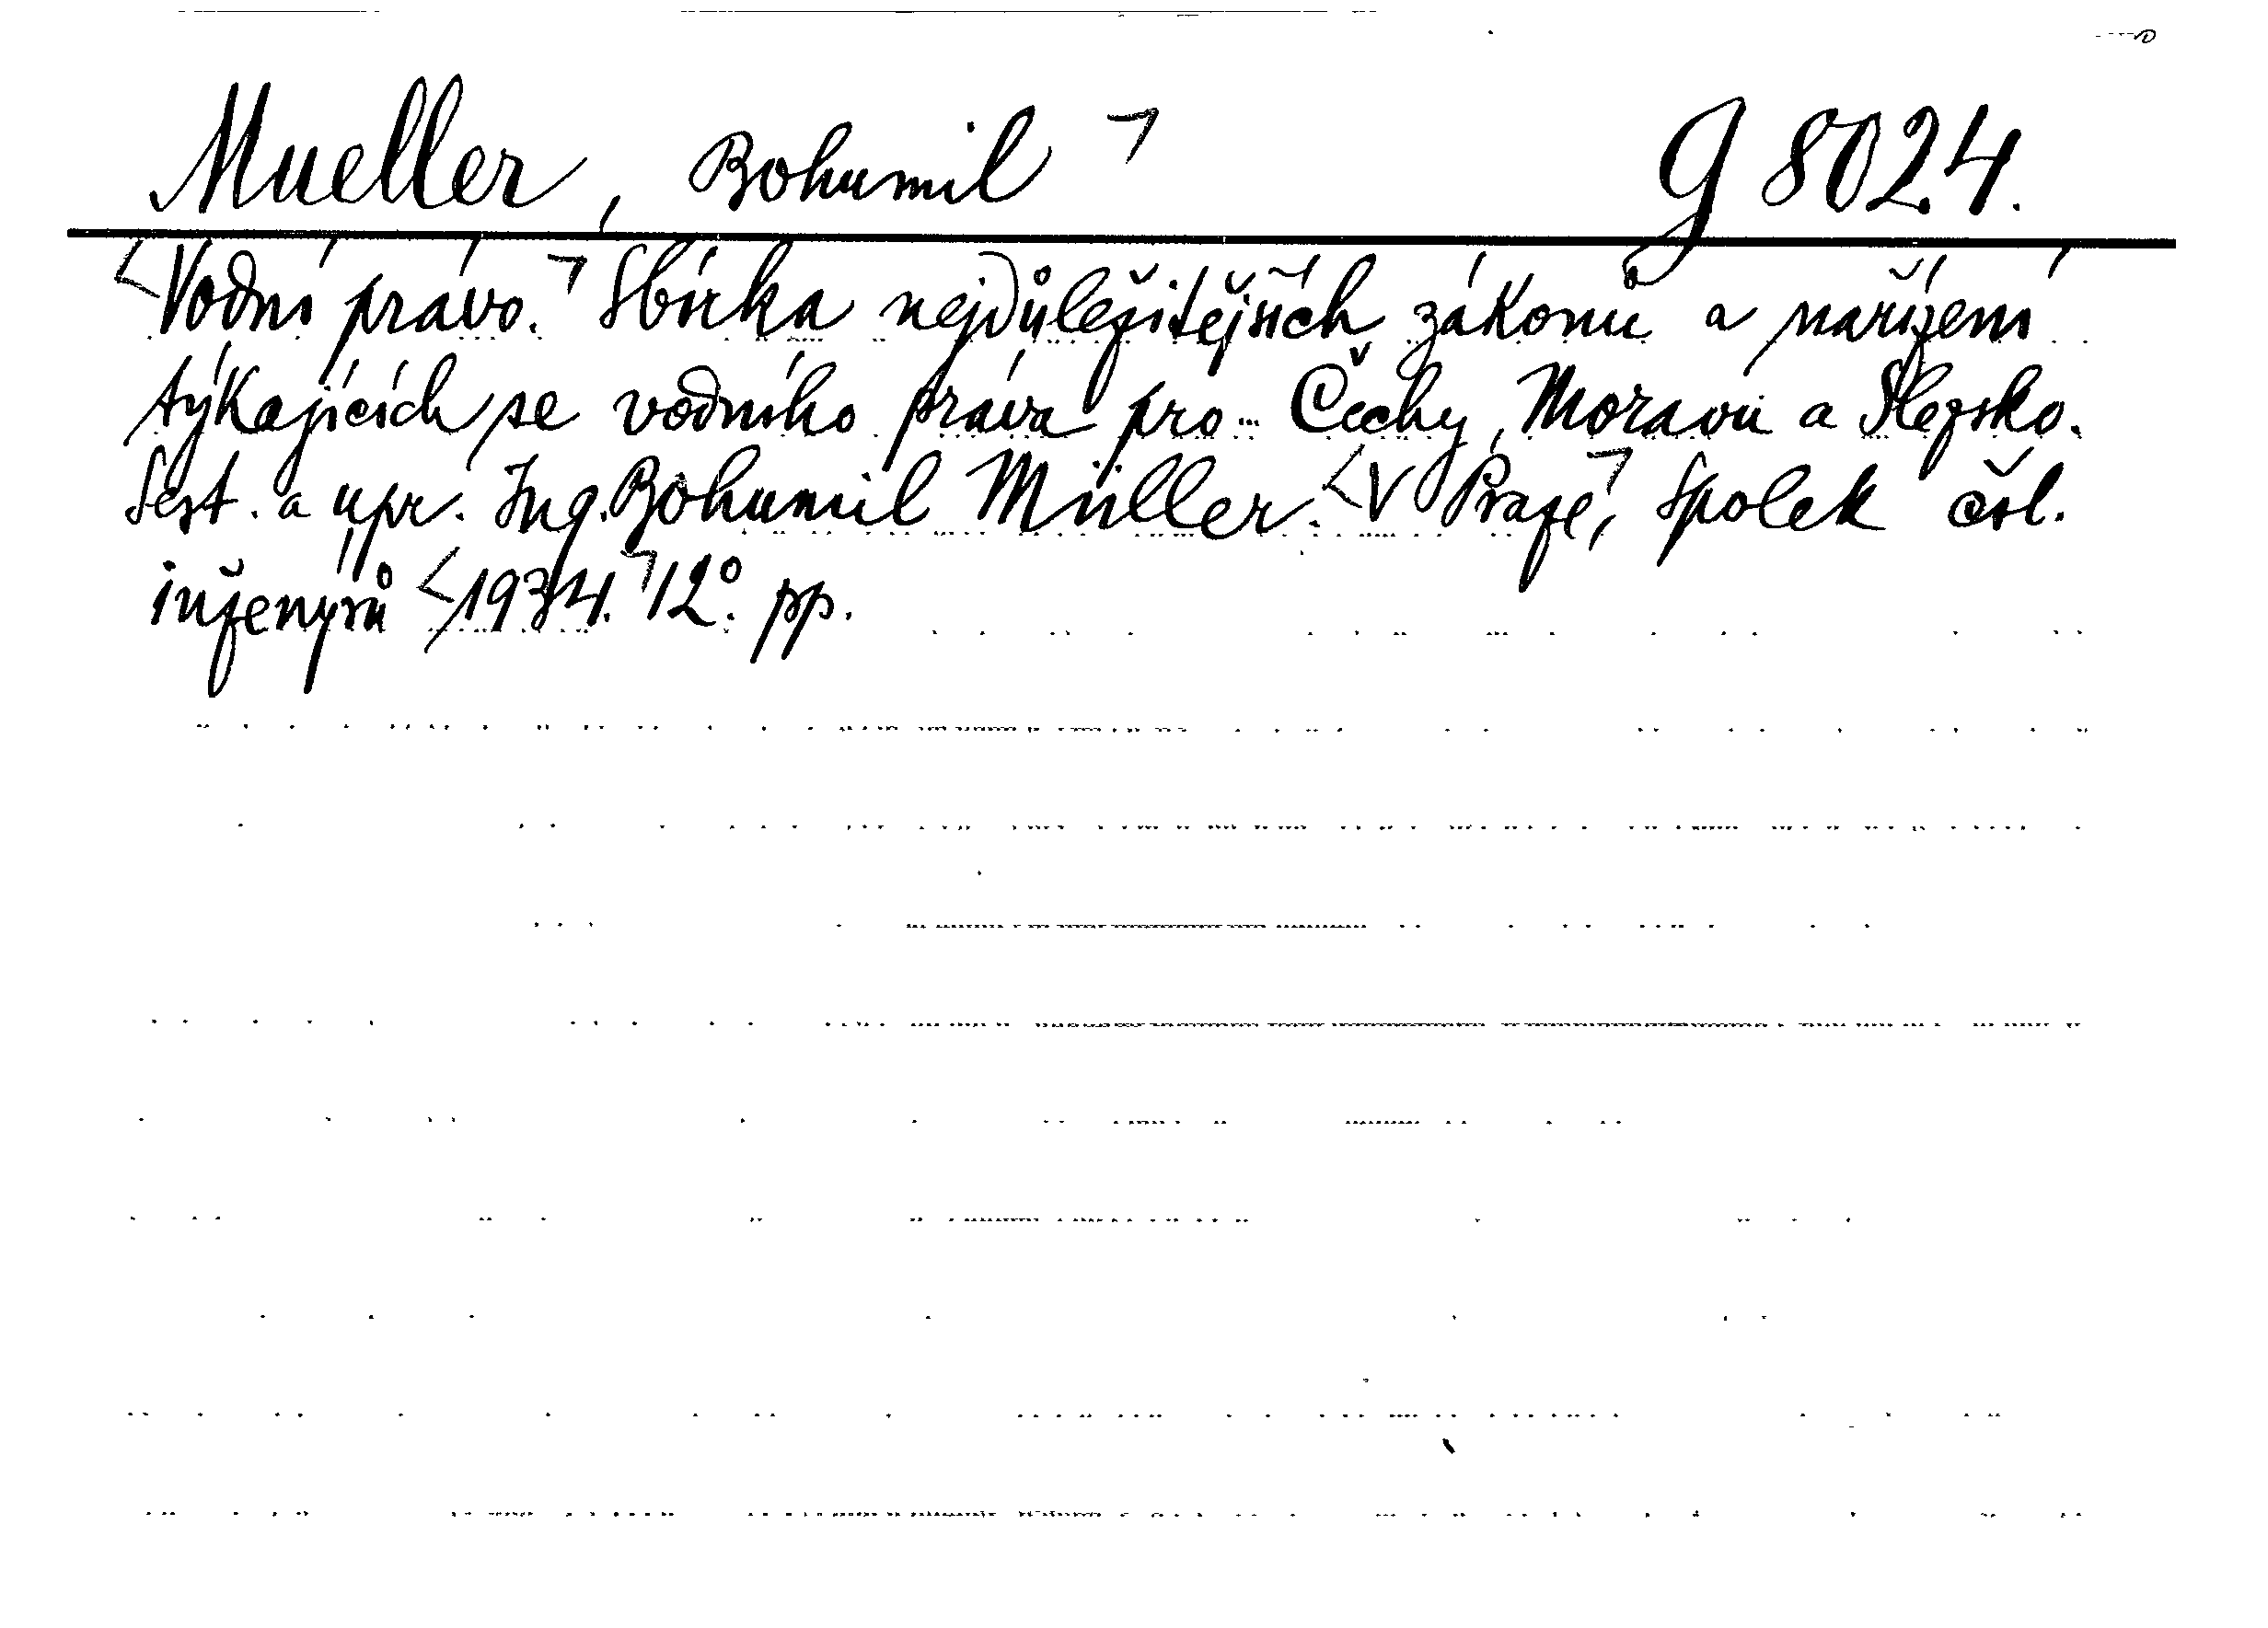 Mueller, Bohumil G 8024.
Vodní právo. Sbírka nejdůležitějších zákonů a nařízení
týkajících se vodního práva pro Čechy, Moravu a Slezsko.
Sest. a upr. Ing. Bohumil Müller. V Praze, Spolek čsl.
inženýrů 1934. 12°. pp.